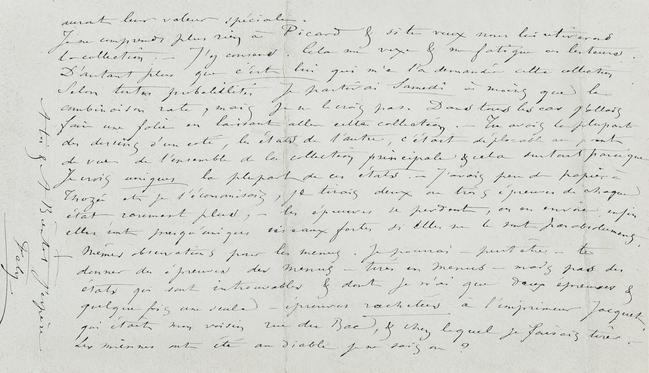 auront leur valeur spéciale.
Je ne comprends plus rien à Picard & si tu veux nous lui retirerons
la collection. – J'y consens. Cela me vexe & me fatigue ces lenteurs.
D'autant plus que c'est lui qui m'a demandé cette collection
Selon toutes probabilités je partirai Samedi à moins que la
combinaison rate, mais je ne le crois pas. Dans tous les cas j'allais
faire une folie en laissant aller cette collection, – Tu avais la plupart
des dessins d'un côté, les états de l'autre, c'était déplorable au point
de vue de l'ensemble de la collection principale & cela surtout parceque
Je crois uniques la plupart de ces états. – J'avais peu de papier à
et je l'économisais, je tirais deux ou trois épreuves de chaque
état rarement plus, – les épreuves se perdent, on en envoie enfin
elles sont presqu'uniques ces eaux fortes si elles ne le sont pas absolument.
Mêmes observations pour les menus. Je pourrai – peut-être – te
donner des épreuves des menus – tirés en menus – mais pas des
états qui sont introuvables & dont je n'ai que deux épreuves &
quelque fois une seule – épreuves rachetées à l'imprimeur Jacquet
qui était mon voisin rue du Bac, & chez lequel je faisais tirer.
Les miennes ont été au diable je ne sais où ?